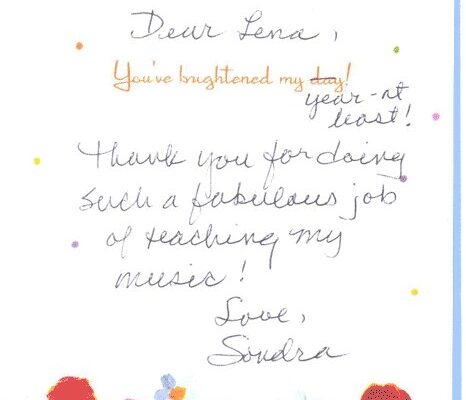 Dear Lena,
You've brightened my day!
year - at
least!
Thank you for doing
such a fabulous job
of teaching my
music!
Love,
Sondra